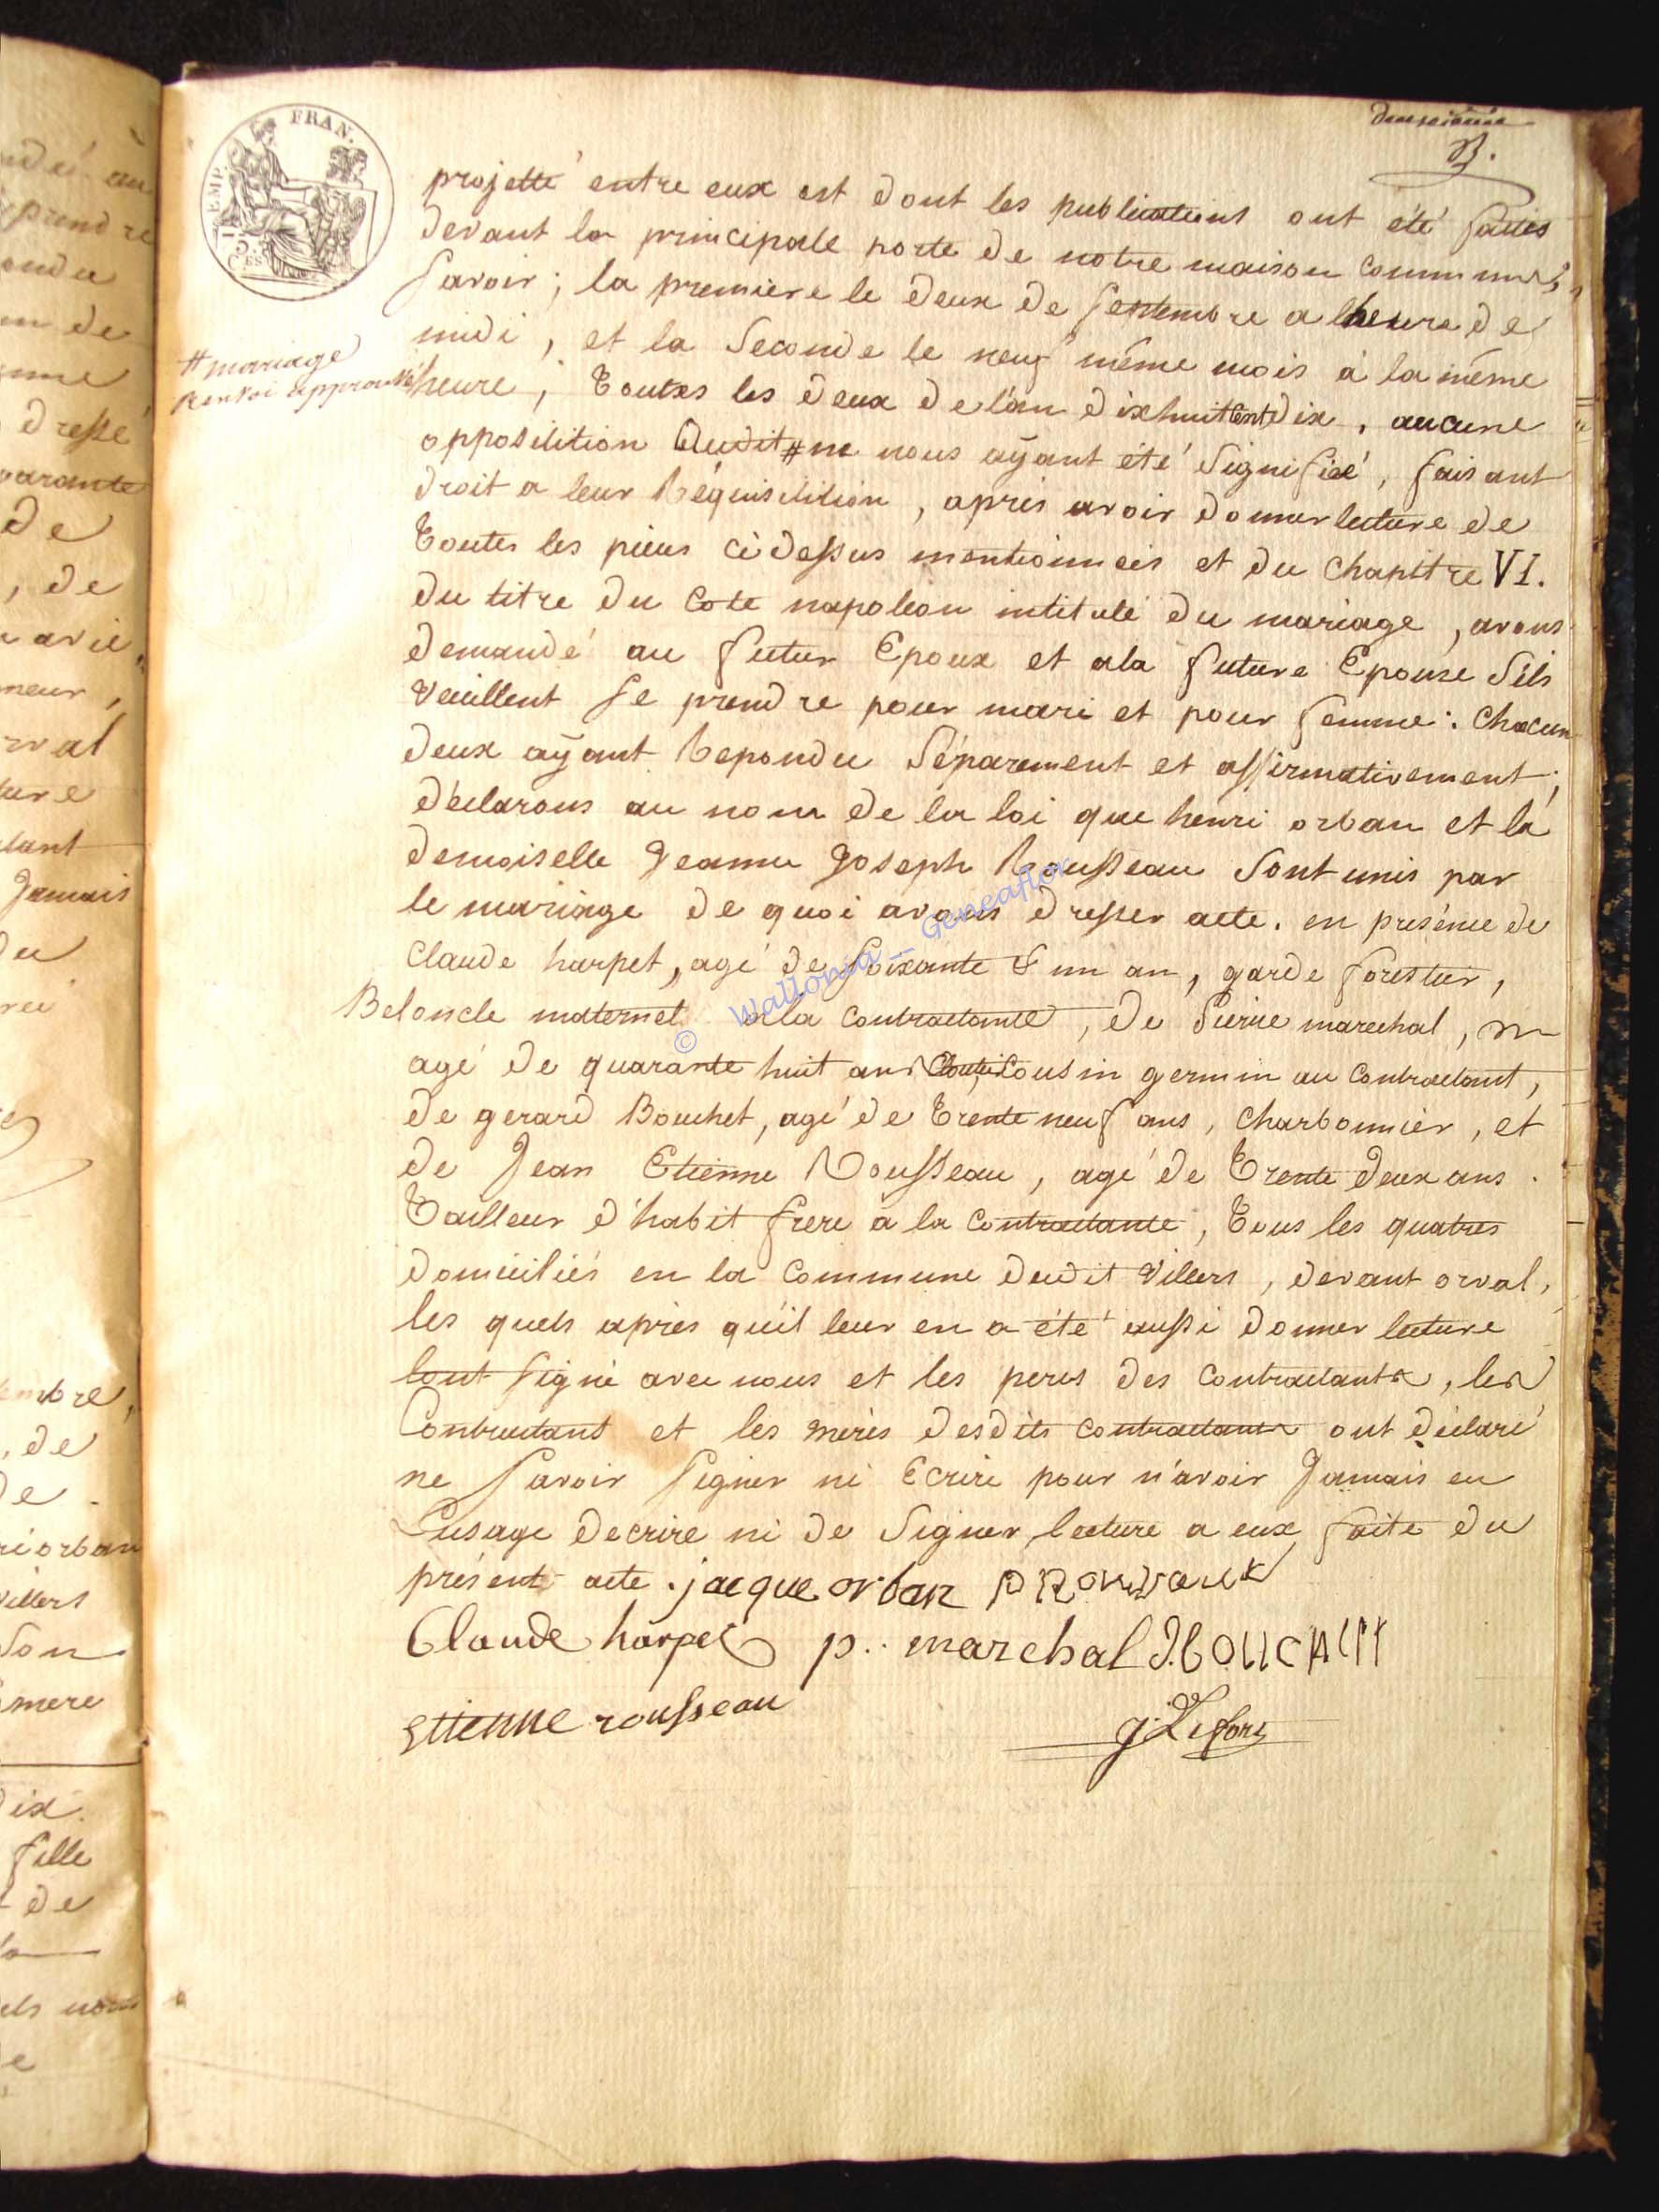 FRAN.
EMP.
projetté entre eux est dont les publications ont été faites
devant la principale porte de notre maison commune,
savoir; la premiere le deux de septembre a lheure de
midi, et la seconde le neuf même mois à la même
# mariage
renvoi approuvé
heure; toutes les deux de l'an dixhuitcentdix, aucune
opposilition audit # ne nous aÿant été signifiéé, faisant
droit a leur réquisilition, aprés avoir donner lecture de
toutes les pieces cidessus mentionnéés et du chapitre VI.
du titre du Code napoleon intitulé du mariage, avons
demandé au futur Epoux et ala future Epouse s'ils
veuillent se prendre pour mari et pour femme: chacun
deux aÿant repondu séparement et affirmativement;
déclarons au nom de la loi que henri orban et la
demoiselle Jeanne Joseph Rousseau sont unis par
le mariage de quoi avons dresser acte. en présence de
Claude harpet, agé de soixante & un an, garde forestier,
Beloncle maternel ala contractante, de Pierre marechal,
agé de quarante huit ans Cousin germin au contractant,
de gerard Bouchet, agé de trente neuf ans, charbonnier, et
de Jean Etienne Rousseau, agé de trente deux ans.
tailleur d'habit frere à la contractante, tous les quatres
domiciliés en la commune dudit villers, devant orval,
les quels aprés quil leur en a été aussi donner lecture
lont signé avec nous et les peres des contractants, les
Contractant et les merés desdits contractants ont déclaré
ne savoir signer ni Ecrire pour n'avoir Jamais eu
Lusage decrire ni de signer lecture a eux faite du
présent acte. jacque orban
Claude harpet p. marechal
Ettienne rousseau
© Wallonia - Geneaflor